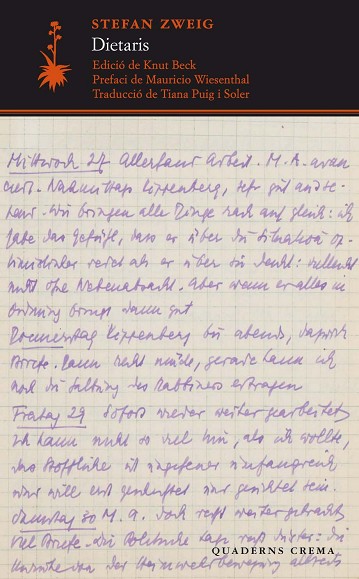 STEFAN ZWEIG
Dietaris
Edició de Knut Beck
Prefaci de Mauricio Wiesenthal
Traducció de Tiana Puig i Soler
Mittwoch 27 Allerhand Arbeit. M. A.
Nachmittags Kippenberg, sehr gut
Wir bringen alle Dinge rasch auf gleich: ich
habe das Gefühl, dass er über die Situation
redet als er über sie denkt: vielleicht
nicht ohne Nebenabsicht. Aber wenn er alles in
Ordnung bringt dann gut
Donnerstag Kippenberg bis abends, dazwischen
Briefe. Dann recht müde, gerade kann ich
noch die des Rabbiners ertragen
Freitag 29 Sofort wieder weitergearbeitet
Ich kann nicht so viel hin, als ich wollte,
das Stoffliche ist ungeheuer umfangreich
und will erst gesichtet sein.
Samstag 30 M. A. doch recht weitergebracht
Viel Briefe. Die Politische Lage recht düster: die
der Heimwehrbewegung
QUADERNS CREMA